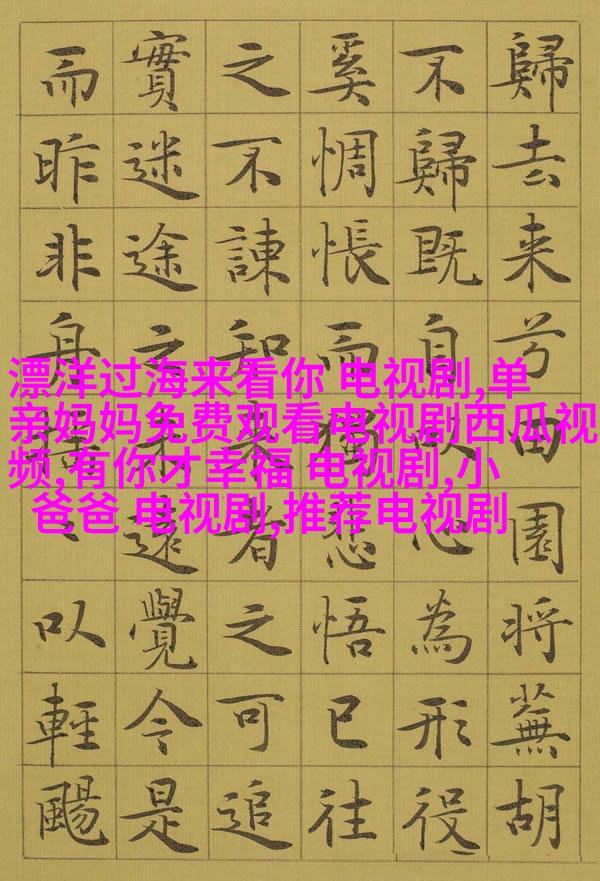 漂洋过海来看你 电视剧,单
亲妈妈免费观看电视剧西瓜视
频,有你才幸福 电视剧,小
爸爸 电视剧,推荐电视剧
歸去来兮田園将蕪胡
不歸既自心為形役
奚惆悵而獨悲悟已往
之不諫知来者之可追
實迷途未遠覺今是
而昨非舟摇〻以輕颺